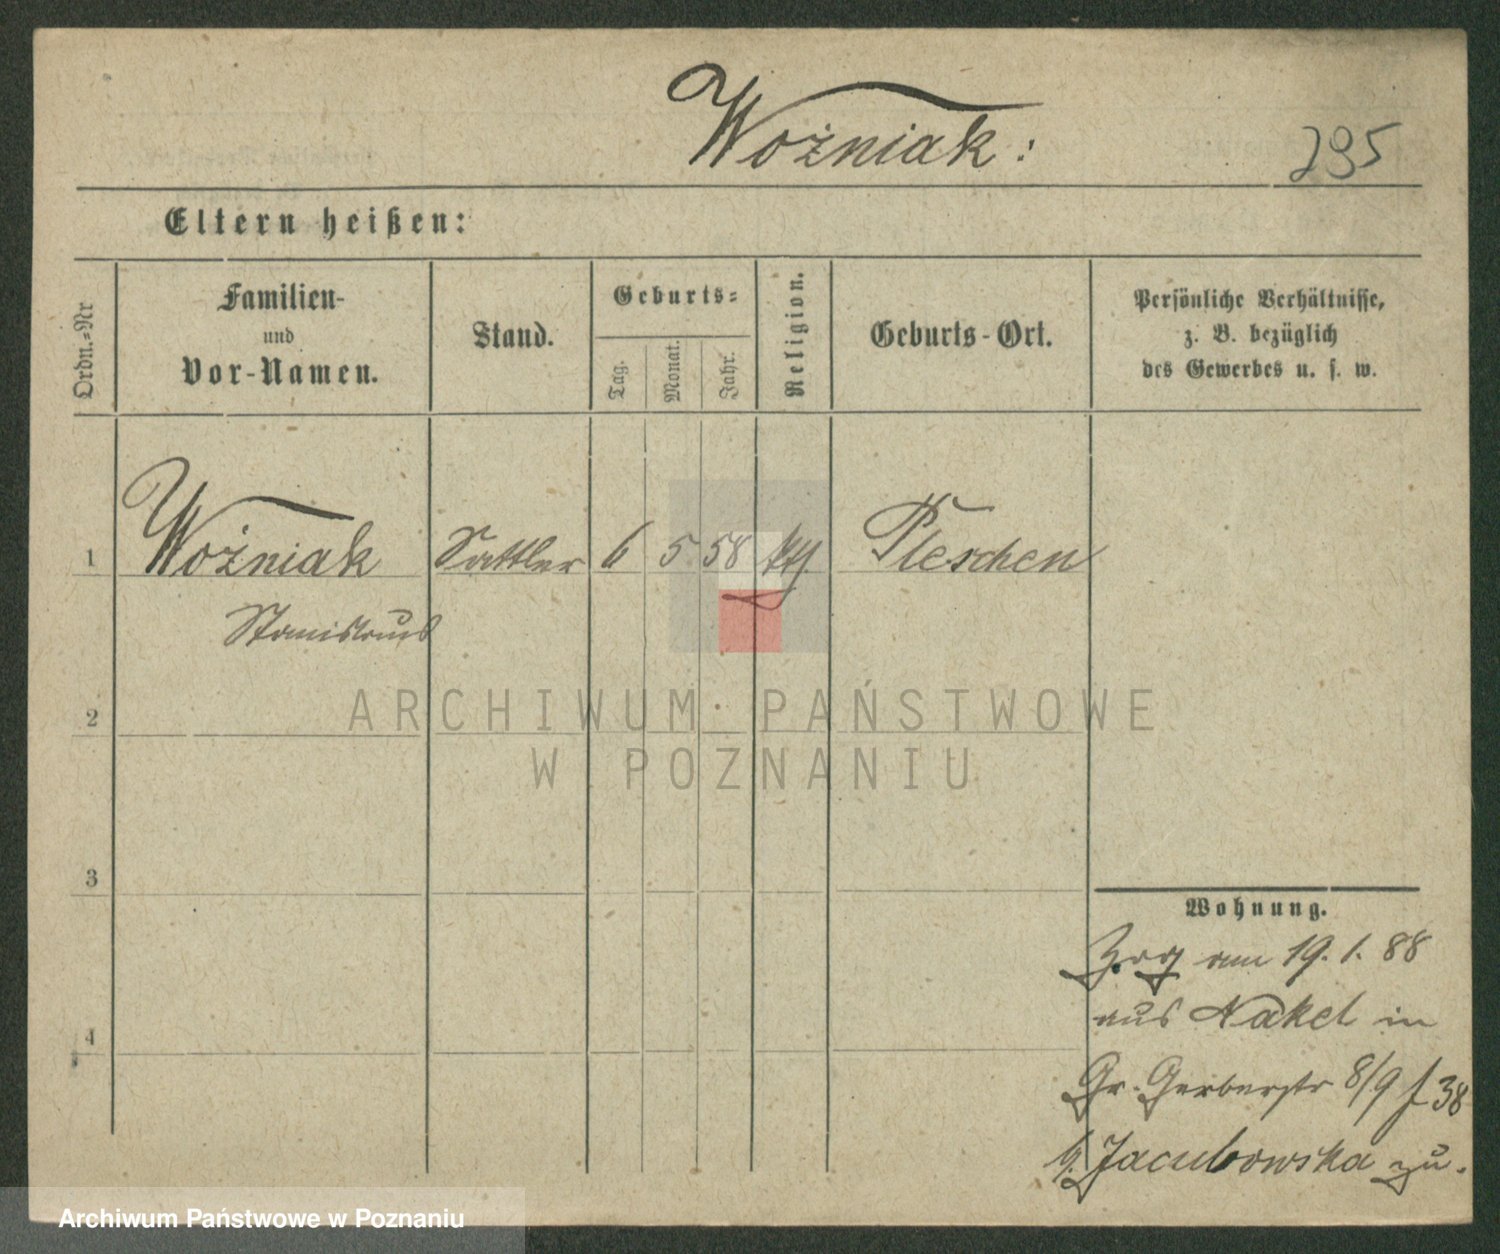 Woźniak:
295
Eltern heißen:
Ordn.-Nr
Familien-
und
Vor-Namen.
Stand.
Geburts-
Tag.
Monat.
Jahr.
Religion.
Geburts-Ort.
Persönliche Verhältnisse,
z. B. bezüglich
des Gewerbes u. s. w.
1 Woźniak Sattler 6 5 58 kth Pleschen
Stanislaus
ARCHIWUM PAŃSTWOWE
W POZNANIU
2
3
4
Wohnung.
Zog am 19. 1. 88
aus Nakel in
Gr. Gerberstr 8/9 f 38
b. Jacubowska zu.
Archiwum Państwowe w Poznaniu